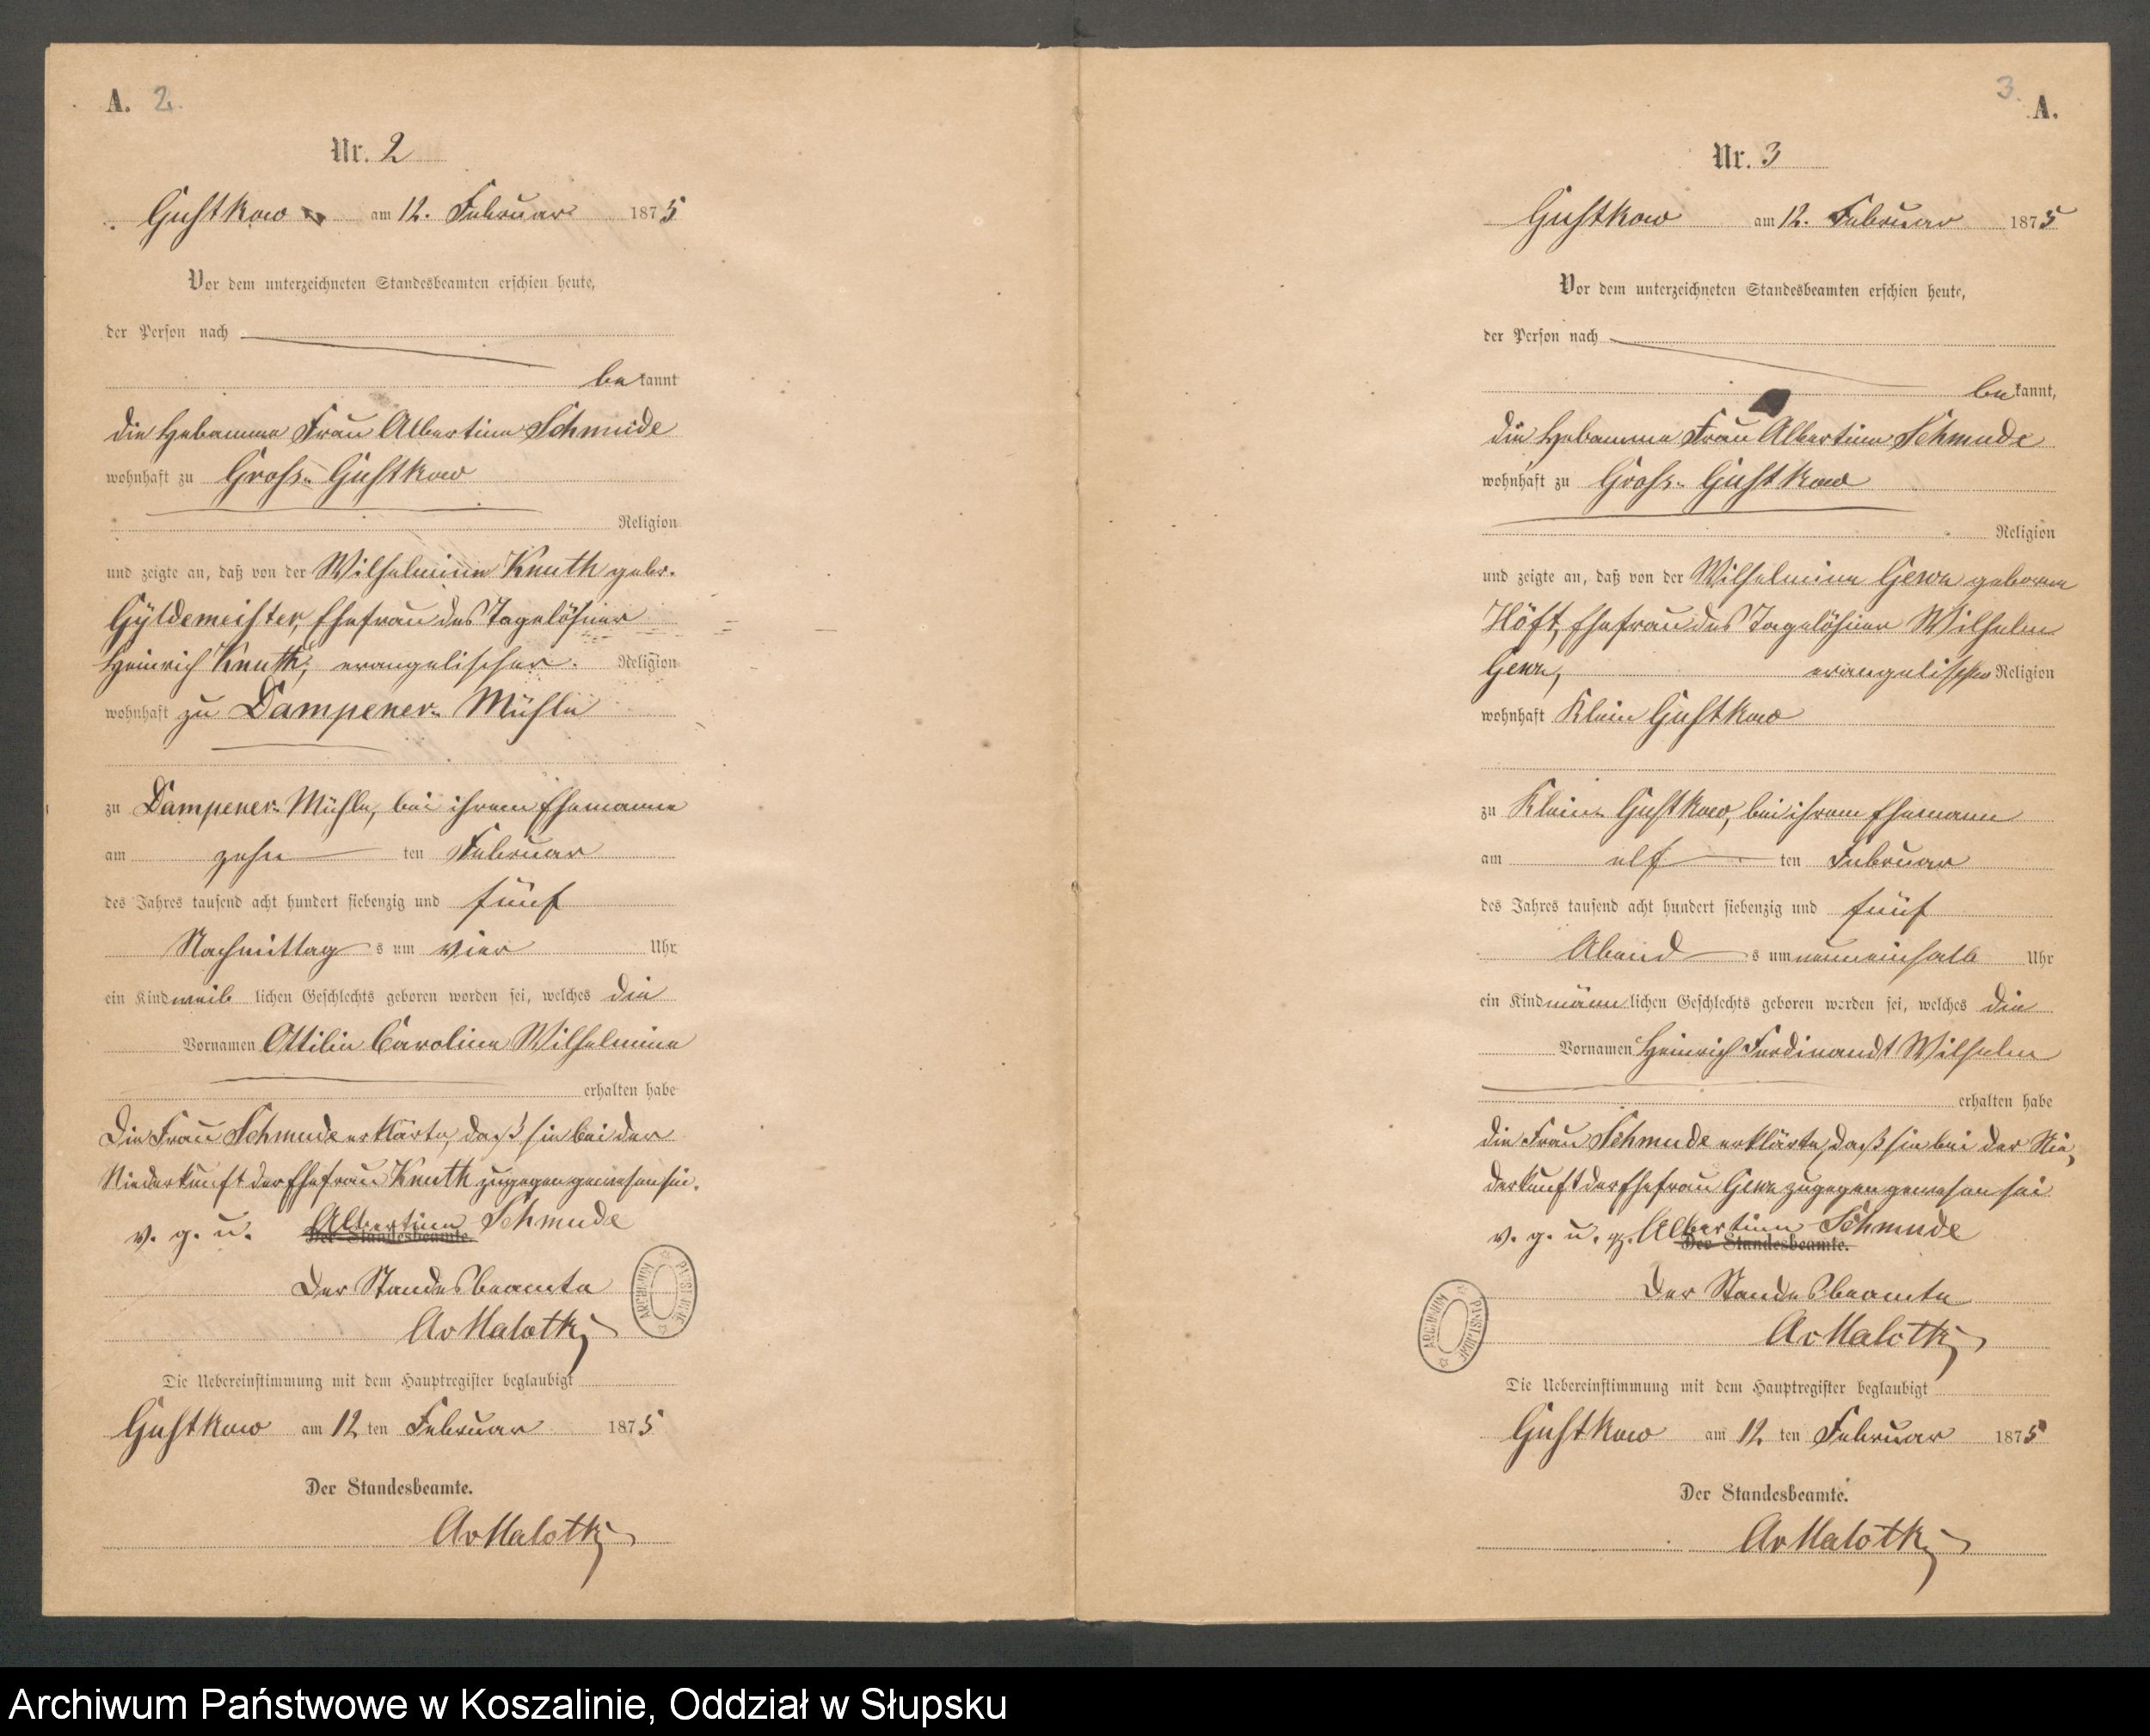 A. 2.
Nr. 2
Gustkow am 12. Februar 1875
Vor dem unterzeichneten Standesbeamten erschien heute,
der Person nach
bekannt
die Hebamme Frau Albertine Schmude
wohnhaft zu Gross-Gustkow
Religion
und zeigte an, daß von der Wilhelmine Knuth gebr.
Gyldemeister, Ehefrau des Tagelöhner
Heinrich Knuth, evangelischer Religion
wohnhaft zu Dampener-Mühle
zu Dampener-Mühle, bei ihrem Ehemanne
am zehn ten Februar
des Jahres tausend acht hundert siebenzig und fünf
Nachmittags um vier Uhr
ein Kind weiblichen Geschlechts geboren worden sei, welches die
Vornamen Ottilie Caroline Wilhelmine
erhalten habe
Die Frau Schmude erklärte, daß sie bei der
Niederkunft der Ehefrau Knuth zugegen gewesen sei.
v. g. u. Albertine Schmude
Der Standesbeamte.
Der Standesbeamte
AvMalotky
Die Uebereinstimmung mit dem Hauptregister beglaubigt
Gustkow am 12 ten Februar 1875
Der Standesbeamte.
AvMalotky
3. A.
Nr. 3
Gustkow am 12. Februar 1875
Vor dem unterzeichneten Standesbeamten erschien heute,
der Person nach
bekannt,
die Hebamme Frau Albertine Schmude
wohnhaft zu Gross-Gustkow
Religion
und zeigte an, daß von der Wilhelmine Gewe geborne
Höft, Ehefrau des Tagelöhner Wilhelm
Gewe, evangelischer Religion
wohnhaft Klein Gustkow
zu Klein-Gustkow, bei ihrem Ehemann
am elf ten Februar
des Jahres tausend acht hundert siebenzig und fünf
Abends um neuneinhalb Uhr
ein Kind männlichen Geschlechts geboren worden sei, welches die
Vornamen Heinrich Ferdinandt Wilhelm
erhalten habe
Die Frau Schmude erklärte, daß sie bei der Nie-
derkunft der Ehefrau Gewe zugegen gewesen sei
v. g. u. gz. Albertine Schmude
Der Standesbeamte.
Der Standesbeamte
AvMalotky
ARCHIWUM
Die Uebereinstimmung mit dem Hauptregister beglaubigt
Gustkow am 12 ten Februar 1875
Der Standesbeamte.
AvMalotky
Archiwum Państwowe w Koszalinie, Oddział w Słupsku